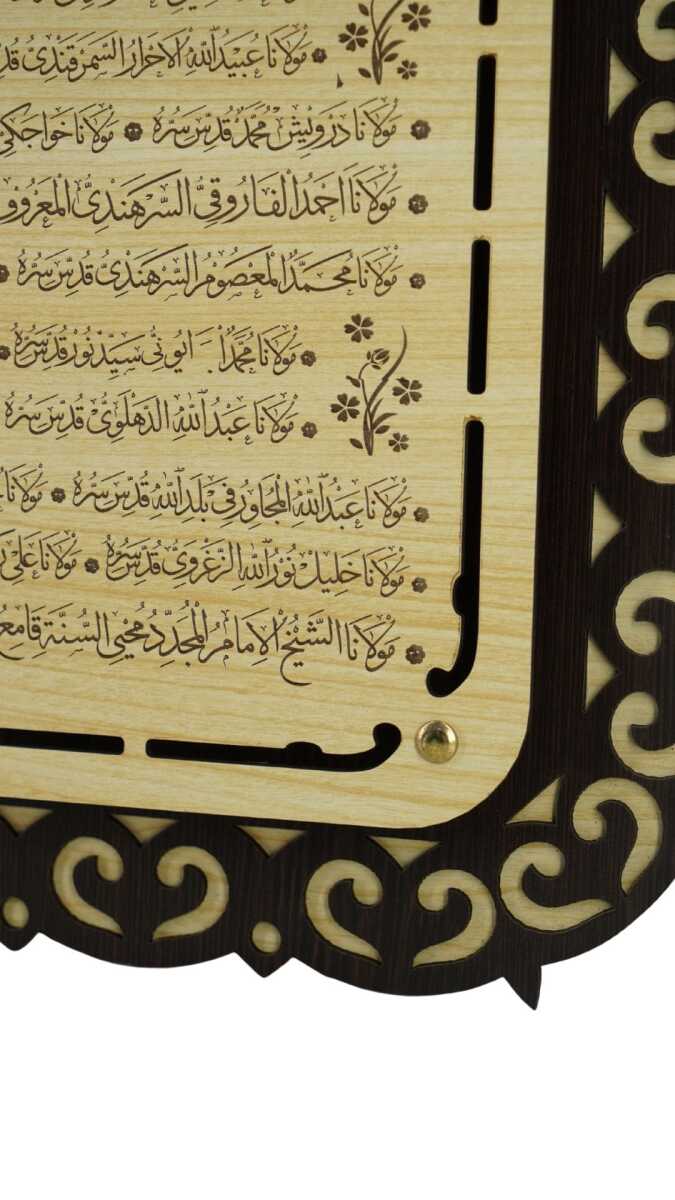 مَوْلَانَا عُبَيْدُ اللهِ الْاَحْرَارُ السَّمَرْقَنْدِيُّ
مَوْلَانَا دَرْوِيشْ مُحَمَّدْ قُدِّسَ سِرُّهُ مَوْلَانَا خَوَاجَكِي
مَوْلَانَا اَحْمَدُ الْفَارُوقِيُّ السَّرْهَنْدِيُّ الْمَعْرُوفُ
مَوْلَانَا مُحَمَّدُ الْمَعْصُومُ السَّرْهَنْدِيُّ قُدِّسَ سِرُّهُ
مَوْلَانَا مُحَمَّدُ سَيِّدْ نُورْ قُدِّسَ سِرُّهُ
مَوْلَانَا عَبْدُ اللهِ الدَّهْلَوِيُّ قُدِّسَ سِرُّهُ
مَوْلَانَا عَبْدُ اللهِ الْمُجَاوِرُ فِي بَلَدِ اللهِ قُدِّسَ سِرُّهُ مَوْلَانَا
مَوْلَانَا خَلِيلْ نُورُ اللهِ الزَّغْرَوِيُّ قُدِّسَ سِرُّهُ مَوْلَانَا عَلِي
مَوْلَانَا الشَّيْخُ الْاِمَامُ الْمُجَدِّدُ مُحْيِي السُّنَّةِ قَامِعُ